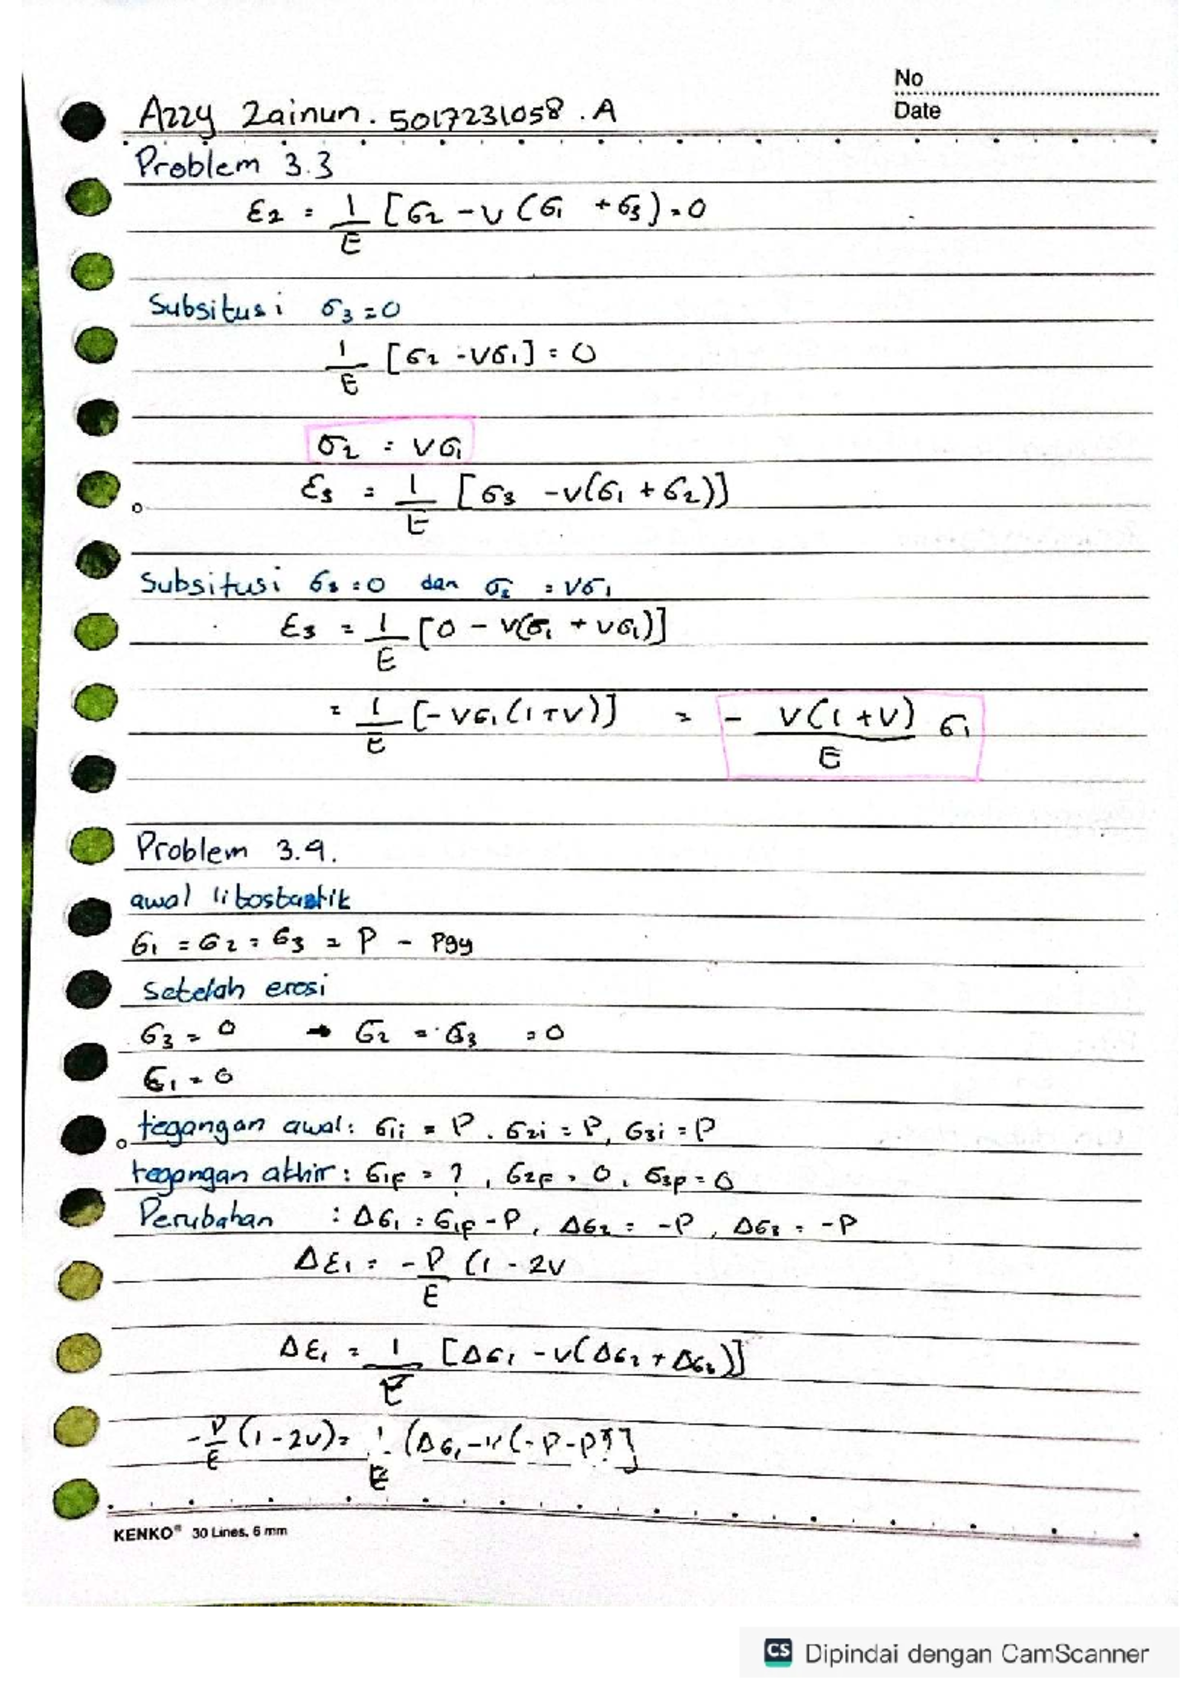 No
Date
Azzy Zainun. 5017231058 .A
Problem 3.3
ε2 = 1/E [σ2 - v (σ1 + σ3) = 0
Subsitusi σ3 = 0
1/E [σ2 - vσ1] = 0
σ2 = vσ1
ε3 = 1/E [σ3 - v(σ1 + σ2)]
Subsitusi σ3 = 0 dan σ2 = vσ1
ε3 = 1/E [0 - v(σ1 + vσ1)]
= 1/E [-vσ1(1+v)] = - v(1+v)/E σ1
Problem 3.9.
awal
σ1 = σ2 = σ3 = P - ρgy
Setelah erosi
σ3 = 0 → σ2 = σ3 = 0
ε1 = 0
tegangan awal: σ1i = P. σ2i = P, σ3i = P
tegangan akhir: σ1F = ?, σ2F = 0, σ3p = 0
Perubahan : Δσ1 = σ1p - P, Δσ2 = -P, Δσ3 = -P
Δε1 = -P/E (1 - 2v
Δε1 = 1/E [Δσ1 - v(Δσ2 + Δσ3)]
-P/E (1-2v) = 1/E (Δσ1 - v(-P-P)]
KENKO® 30 Lines, 6 mm
CS Dipindai dengan CamScanner